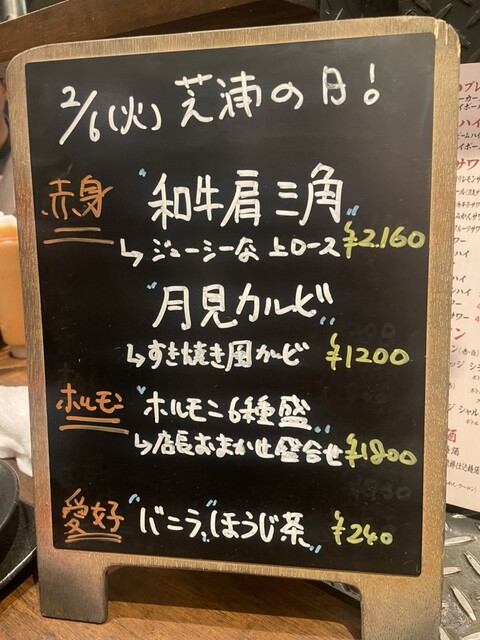 2/6(火) 芝浦の日!
赤身 "和牛肩三角"
↳ジューシーな上ロース ¥2.160
"月見カルビ"
↳すき焼き用カルビ ¥1200
ホルモン "ホルモン6種盛"
↳店長おまかせ盛合せ ¥1800
愛好 "バニラ" "ほうじ茶" ¥240